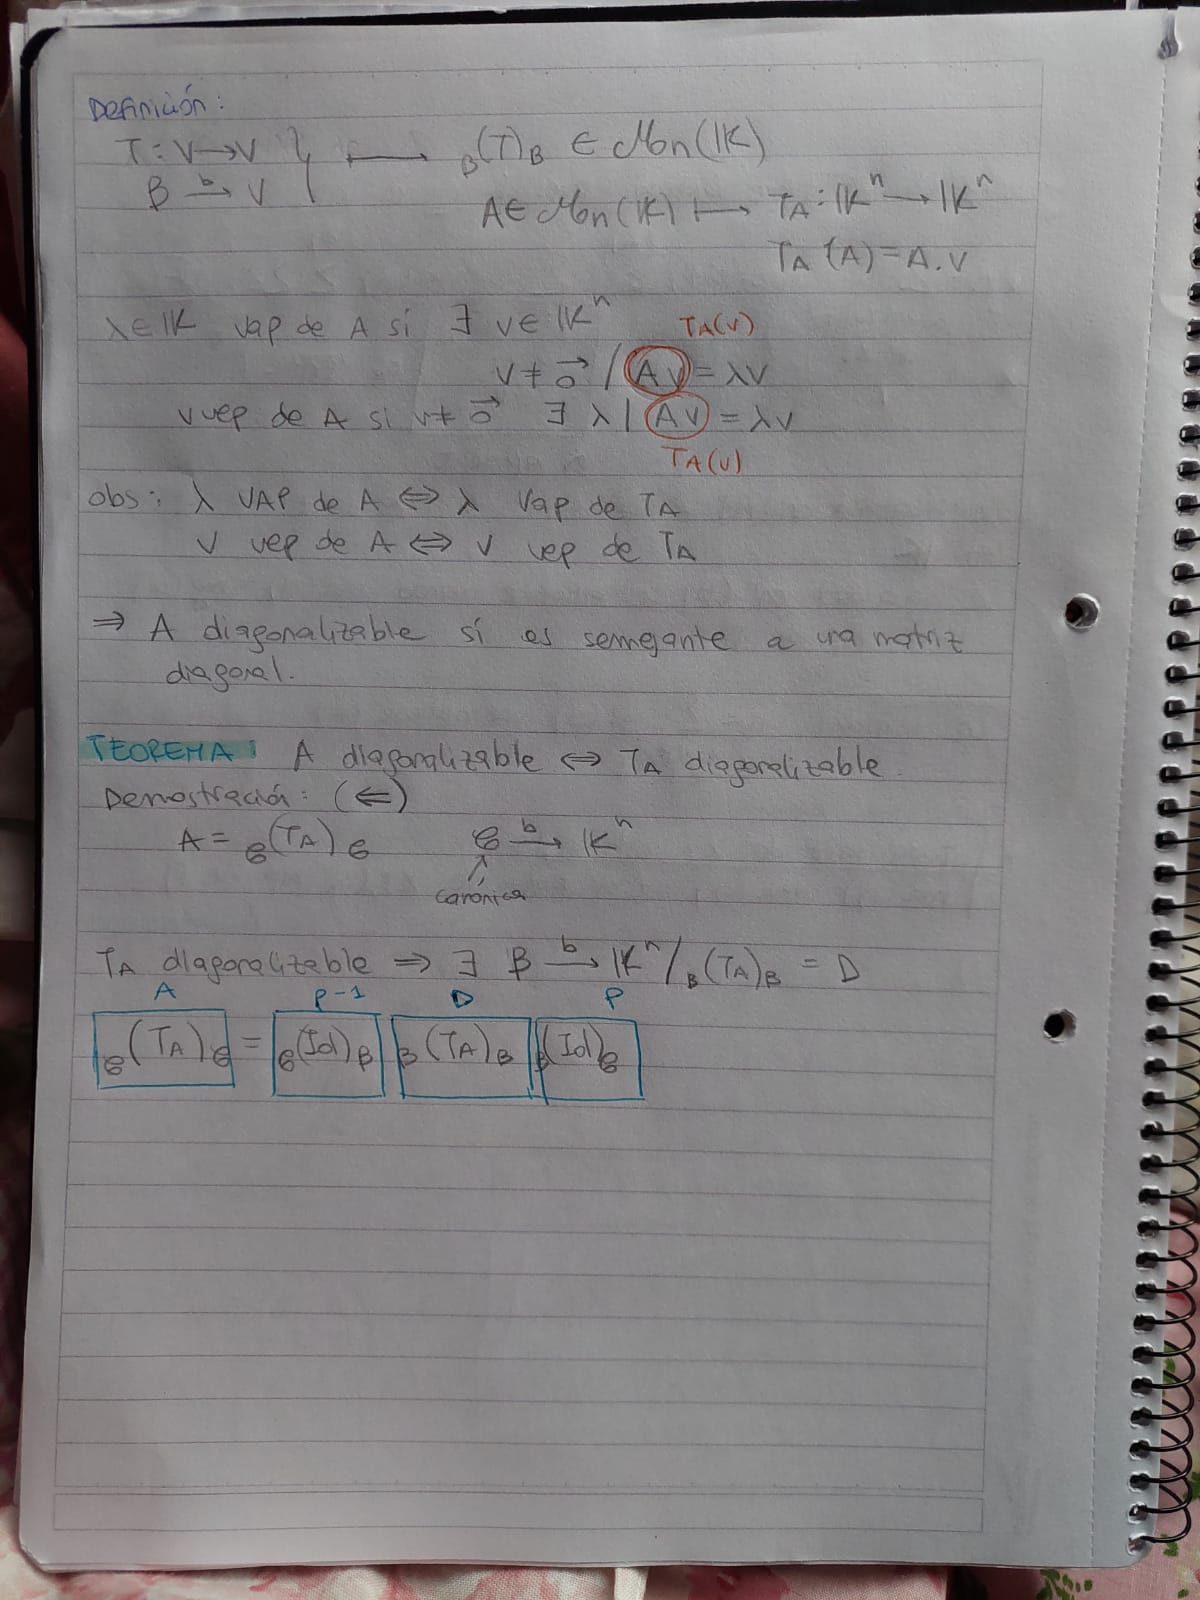 Definición:
T: V→V } ⟼ ᵦ(T)ᵦ ∈ Mn(𝕂)
β →ᵇ V
A ∈ Mn(𝕂) ⟼ T_A : 𝕂ⁿ → 𝕂ⁿ
T_A (A) = A.V
λ∈𝕂 vap de A si ∃ v∈𝕂ⁿ T_A(v)
v ≠ 0⃗ / Av = λv
v vep de A si v≠ 0⃗ ∃ λ | Av = λv
T_A(v)
obs: λ VAP de A ⇔ λ vap de T_A
v vep de A ⇔ v vep de T_A
⇒ A diagonalizable si es semejante a una matriz
diagonal.
TEOREMA: A diagonalizable ⇔ T_A diagonalizable.
Demostración: (⇐)
A = 𝒞(T_A)𝒞 𝒞 →ᵇ 𝕂ⁿ
↑
canónica
T_A diagonalizable ⇒ ∃ β →ᵇ 𝕂ⁿ / ᵦ(T_A)ᵦ = D
A P-1 D P
𝒞(T_A)𝒞 = 𝒞(Id)ᵦ ᵦ(T_A)ᵦ ᵦ(Id)𝒞